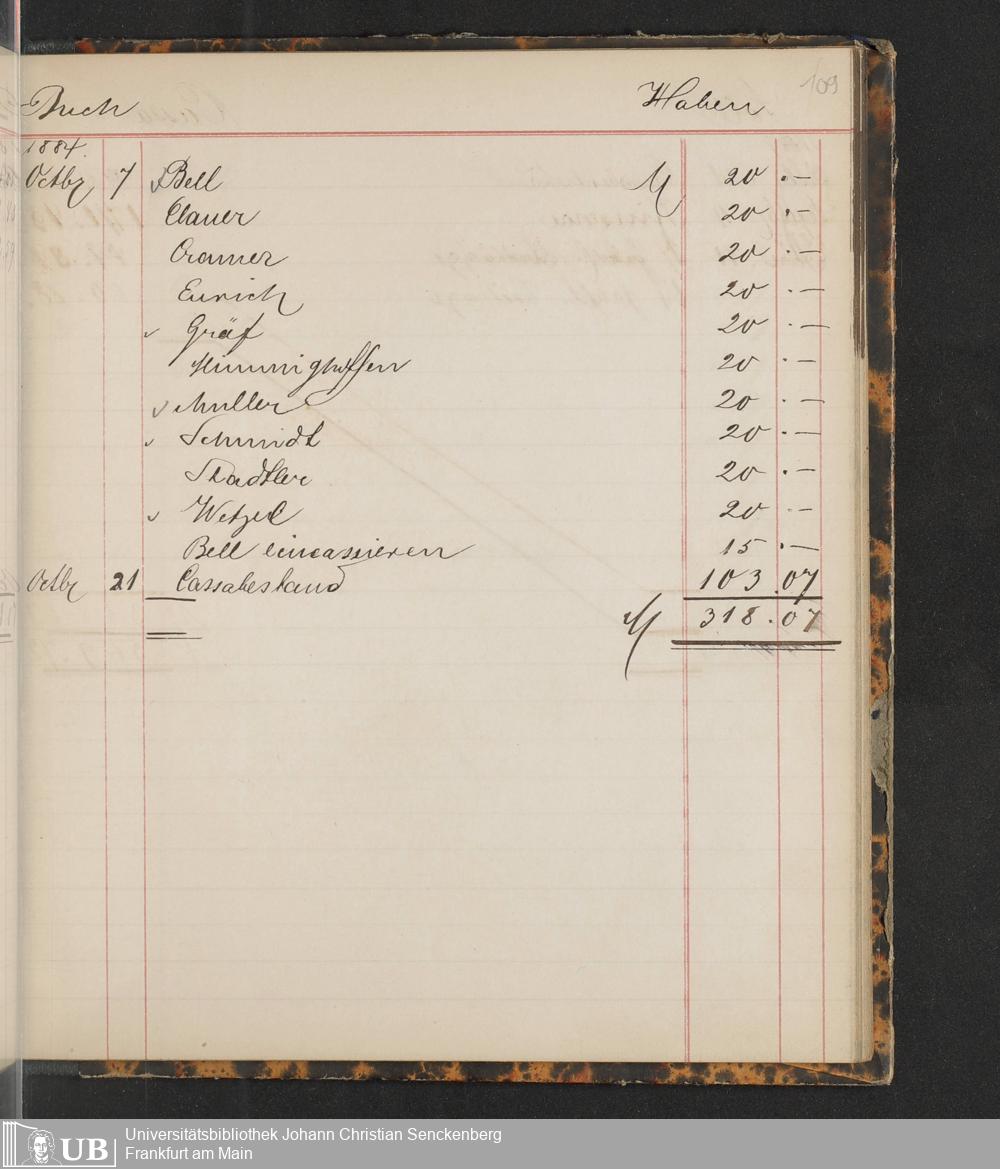 109
Buch Haben
1884.
Octbr 7 Bell M 20 . —
Clauer 20 . —
Cramer 20 . —
Eurich 20 . —
Gräf 20 . —
Himmighoffen 20 . —
Müller 20 . —
Schmidt 20 . —
Stadtler 20 . —
Wetzel 20 . —
Bell eincasieren 15 . —
Octbr 21 Cassabestand 103 . 07
M 318 . 07
UB
Universitätsbibliothek Johann Christian Senckenberg
Frankfurt am Main